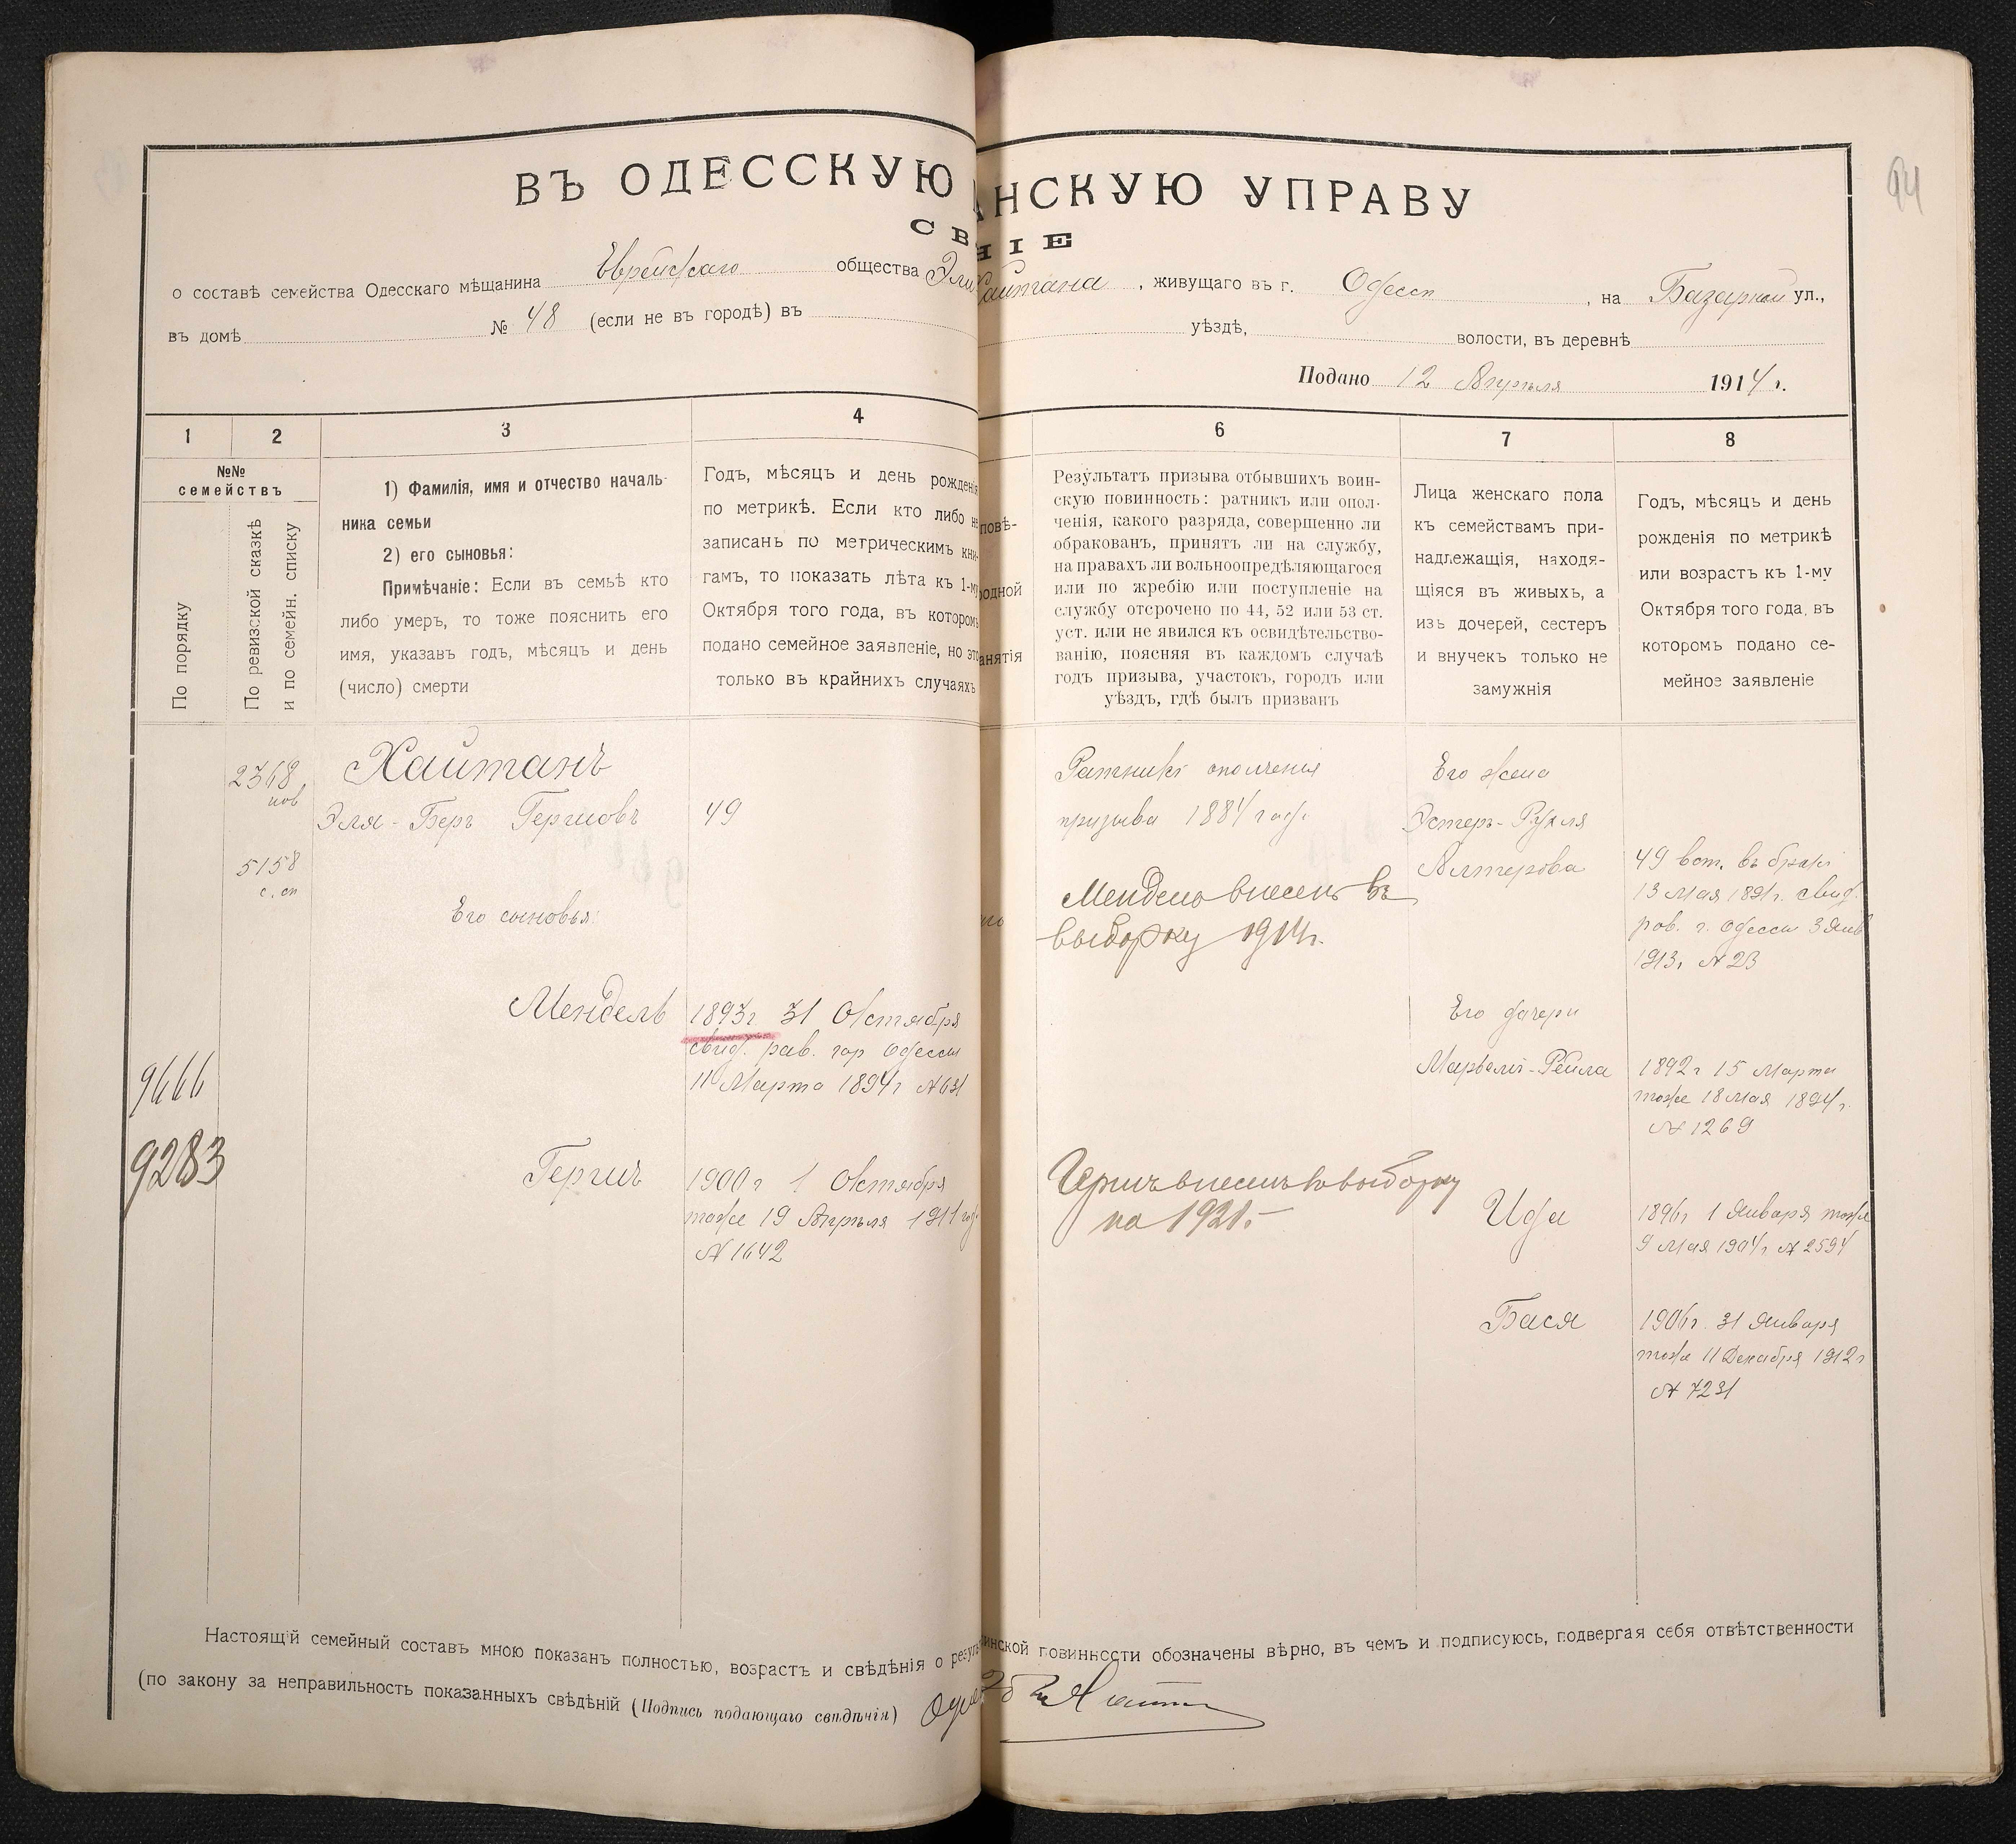 94
ВЪ ОДЕССКУЮ АНСКУЮ УПРАВУ
СВ НІЕ
о составѣ семейства Одесскаго мѣщанина Еврейскаго общества Эли Хайтана, живущаго въ г. Одессѣ, на Базарной ул.,
въ домѣ № 48 (если не въ городѣ) въ уѣздѣ, волости, въ деревнѣ
Подано 12 Апрѣля 1914 г.
1 2 3 4 6 7 8
№№
семействъ
По порядку
По ревизской сказкѣ
и по семейн. списку
1) Фамилія, имя и отчество началь-
ника семьи
2) его сыновья:
Примѣчаніе: Если въ семьѣ кто
либо умеръ, то тоже пояснить его
имя, указавъ годъ, мѣсяцъ и день
(число) смерти
Годъ, мѣсяцъ и день рожденія
по метрикѣ. Если кто либо не
записанъ по метрическимъ кни-
гамъ, то показать лѣта къ 1-му
Октября того года, въ которомъ
подано семейное заявленіе, но это
только въ крайнихъ случаяхъ
повѣ-
родной
анятія
Результатъ призыва отбывшихъ воин-
скую повинность: ратникъ или опол-
ченія, какого разряда, совершенно ли
обракованъ, принятъ ли на службу,
на правахъ ли вольноопредѣляющагося
или по жребію или поступленіе на
службу отсрочено по 44, 52 или 53 ст.
уст. или не явился къ освидѣтельство-
ванію, поясняя въ каждомъ случаѣ
годъ призыва, участокъ, городъ или
уѣздъ, гдѣ былъ призванъ
Лица женскаго пола
къ семействамъ при-
надлежащія, находя-
щіяся въ живыхъ, а
изъ дочерей, сестеръ
и внучекъ только не
замужнія
Годъ, мѣсяцъ и день
рожденія по метрикѣ
или возрастъ къ 1-му
Октября того года, въ
которомъ подано се-
мейное заявленіе
2368
нов
5158
с. сп
9666
9283
Хайтанъ
Эля-Беръ Гершовъ
Его сыновья:
Мендель
Гершъ
49
1893г. 31 Октября
свид. рав. гор Одессы
11 Марта 1894г №631
1900г 1 Октября
тоже 19 Апрѣля 1911 год.
№ 1642
Ратникъ ополченія
призыва 1884 год.
Мендель внесенъ въ
выборку 1914г.
Гершъ внесенъ въ выборку
на 1921.-
Его жена
Эстеръ-Рухля
Алтерова
Его дочери
Марьемъ-Рейла
Ида
Бася
49 вст. въ бракъ
13 Мая 1891г. свид.
рав. г. Одессы 3 Янв
1913г № 23
1892г 15 Марта
тоже 18 Мая 1894г.
№ 1269
1896г 1 Января тоже
9 Мая 1904г № 2594
1906г. 31 Января
тоже 11 Декабря 1912г
№ 7231
Настоящій семейный составъ мною показанъ полностью, возрастъ и свѣдѣнія о резуль инской повинности обозначены вѣрно, въ чемъ и подписуюсь, подвергая себя отвѣтственности
(по закону за неправильность показанныхъ свѣдѣній (Подпись подающаго свѣдѣнія)